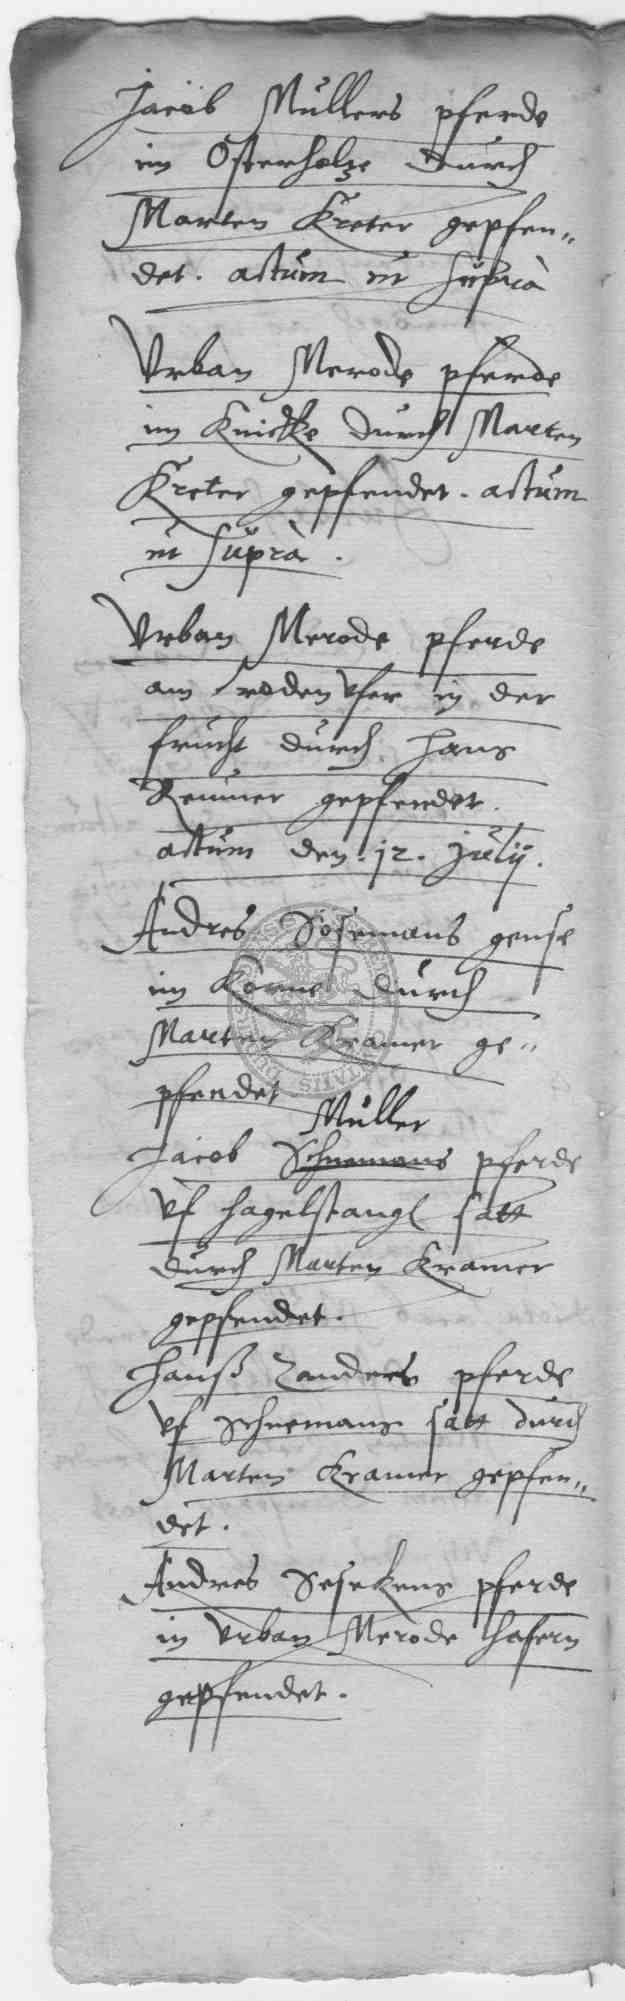 Jacob Müllers pferde
im Osterholtze durch
Marten Kreter gepfen„
det. actum ut suprà
Vrban Merode pferde
im Knicke durch Marten
Kreter gepfendet. actum
ut suprà.
Vrban Merode pferde
am roden Vfer in der
frucht durch Hans
Remmer gepfendet.
actum den. 12. Julij.
Andres Sosemans gense
im Korne durch
Marten Kramer ge„
pfendet
Müller
Jacob Schnemans pferde
Vf Hagelstangl satt
durch Marten Kramer
gepfendet.
Hanß Zanders pferde
Vf Schnemans satt durch
Marten Kramer gepfen„
det.
Andres Sesekens pferde
in Vrban Merode hafern
gepfendet.